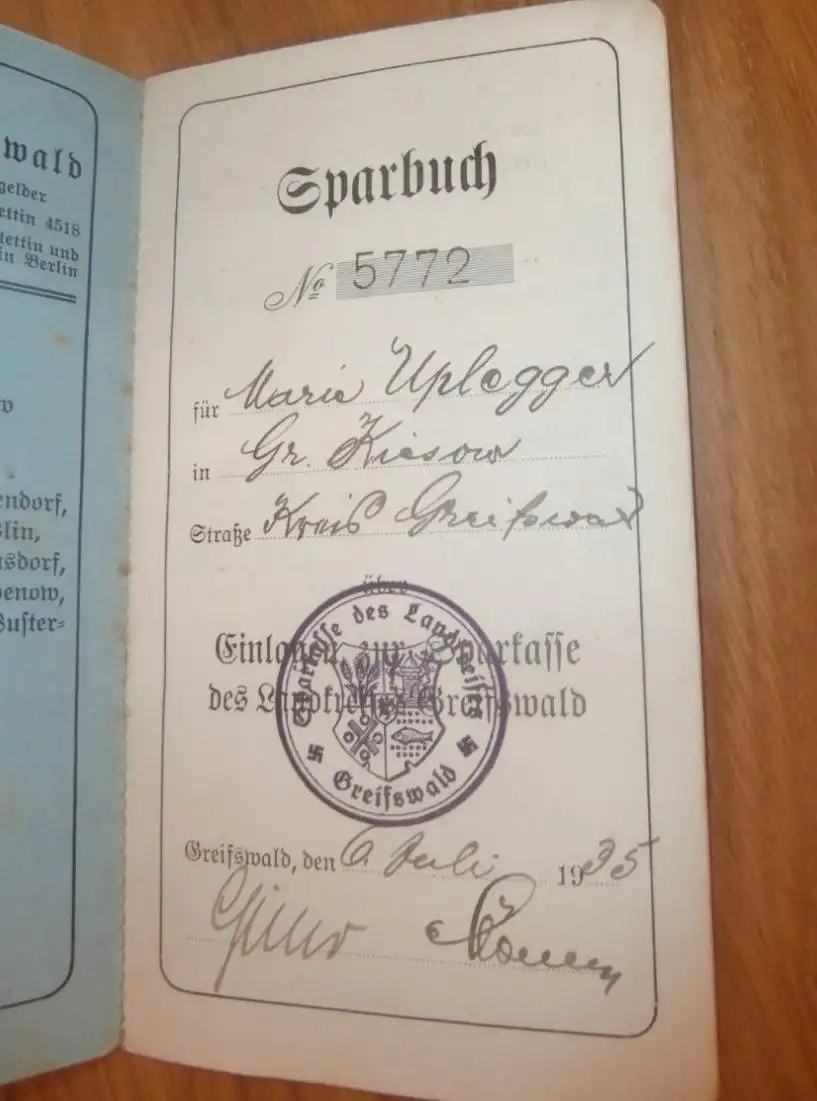 wald
gelder
ettin 4518
tettin und
in Berlin
endorf,
lin,
sdorf,
enow,
Buster-
Sparbuch
No 5772
für Marie Uplegger
in Gr. Kiesow
Straße Kreis Greifswald
über
Einlagen zur Sparkasse
des Landkreises Greifswald
Sparkasse des Landkreises
Greifswald
Greifswald, den 6. Juli 1935